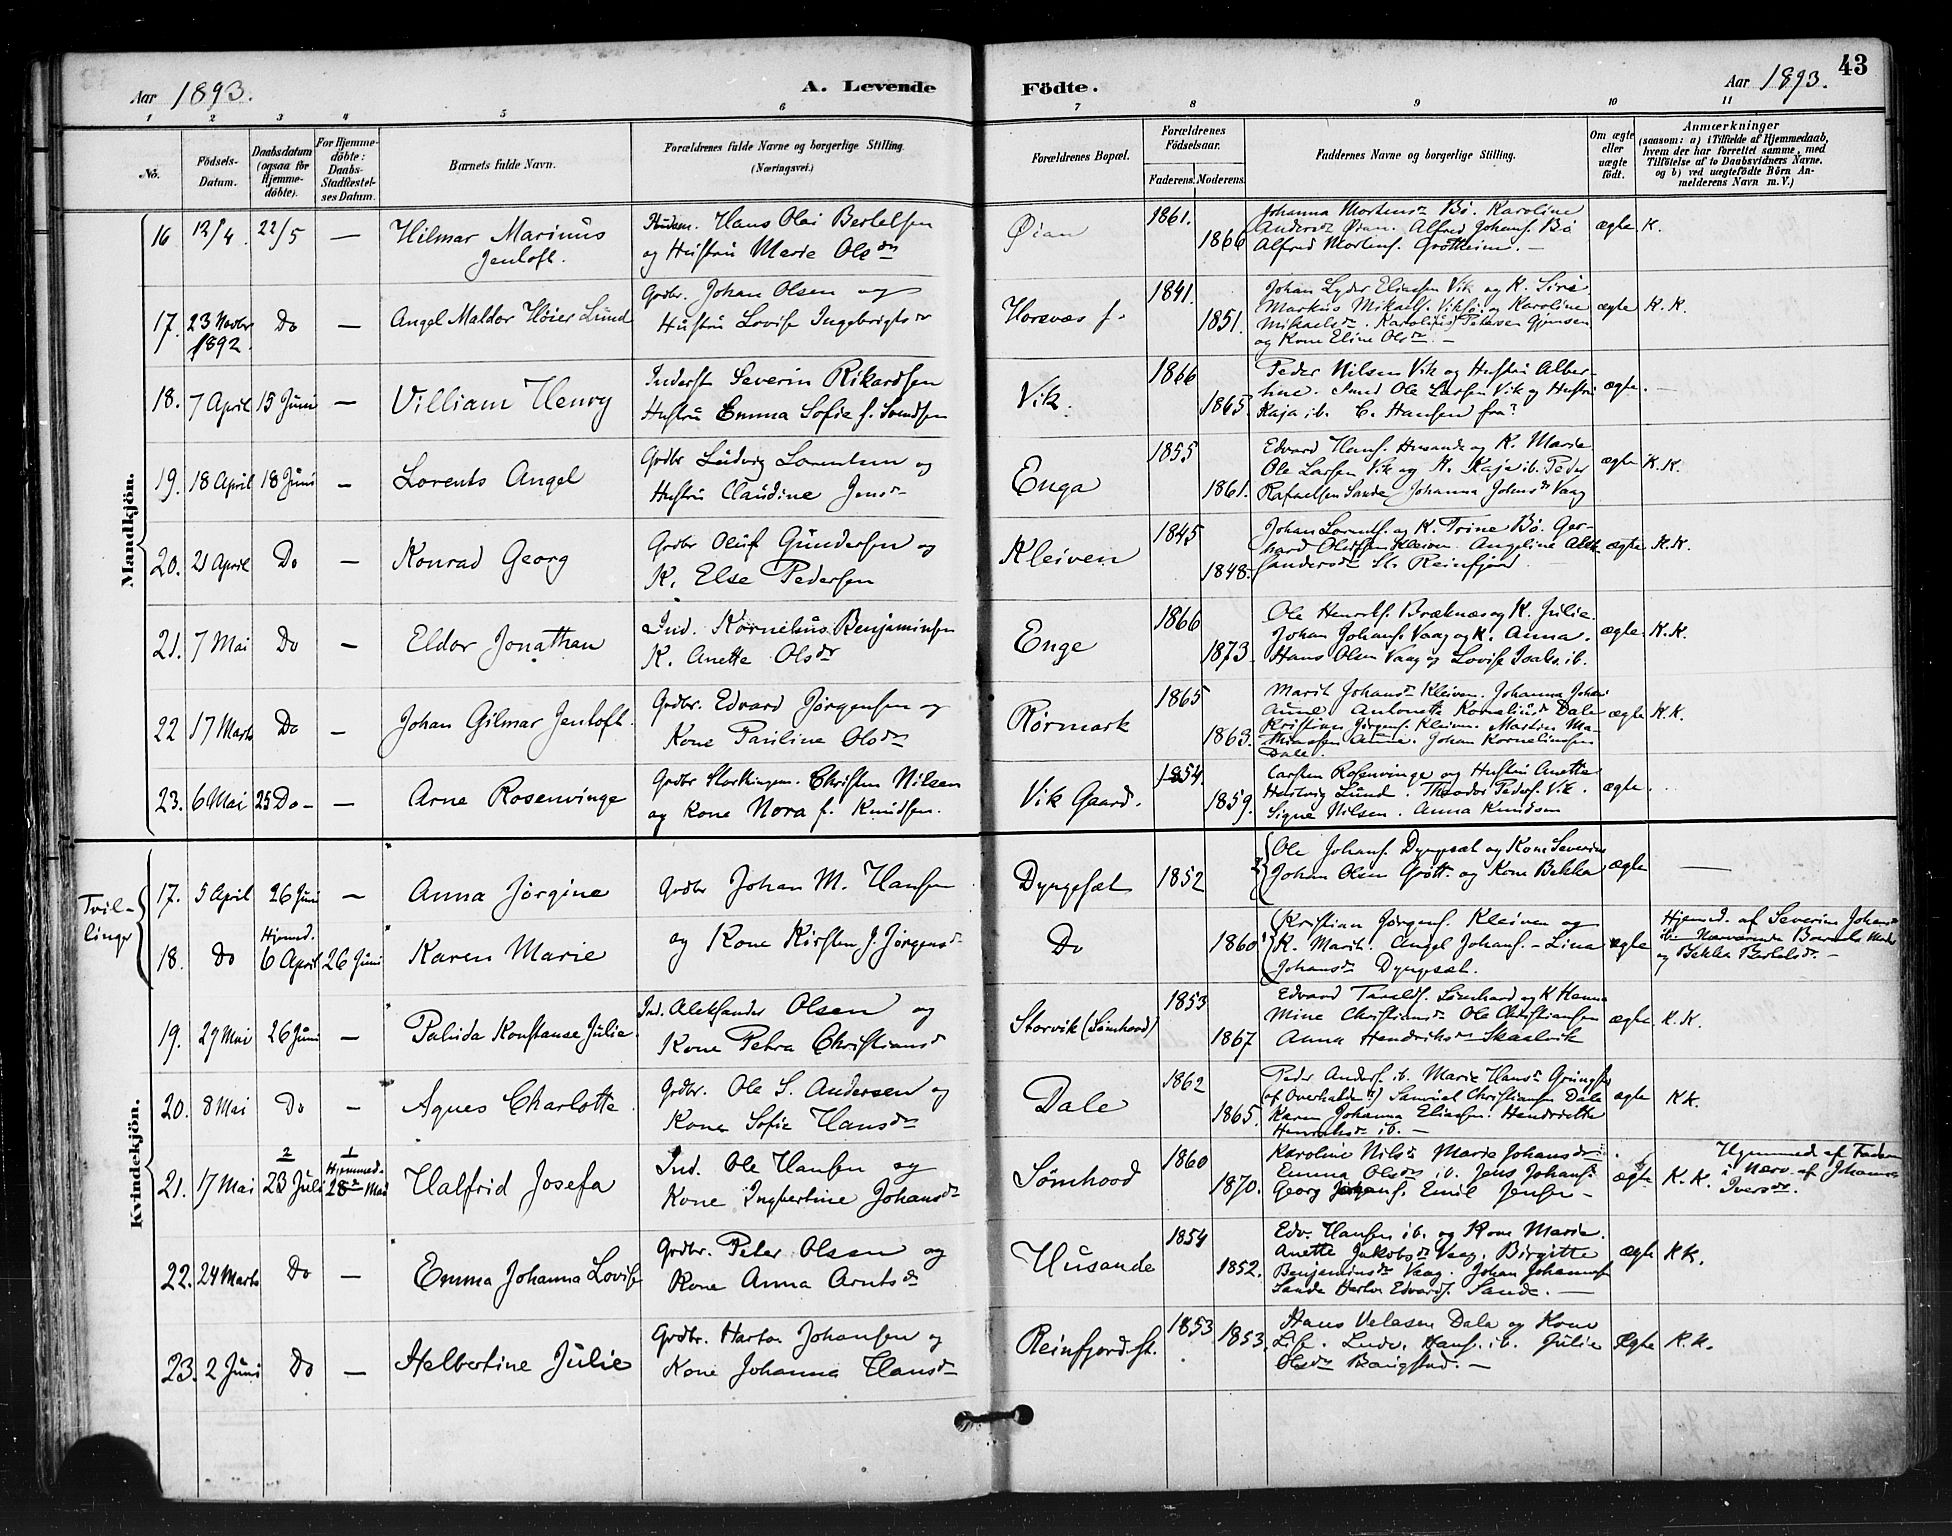 43
Aar 1893. A. Levende Födte. Aar 1893.
1 2 3 4 5 6 7 8 9 10 11
No.
Födsels-
Datum.
Daabsdatum
(ogsaa for
Hjemme-
döbte).
For Hjemme-
döbte:
Daabs-
Stadfæstel-
ses Datum.
Barnets fulde Navn.
Forældrenes fulde Navne og borgerlige Stilling.
(Næringsvei.)
Forældrenes Bopæl.
Forældrenes
Födselsaar.
Faderens. Moderens.
Faddernes Navne og borgerlige Stilling.
Om ægte
eller
uægte
födt.
Anmærkninger
(saasom: a) i Tilfælde af Hjemmedaab,
hvem der har forrettet samme, med
Tilföielse af to Daabsvidners Navne.
og b) ved uægtefödte Börn An-
melderens Navn m. V.)
Mandkjön.
16 12/4 22/5 — Hilmar Marinus
Jentoft.
Hans Olai Bertelsen
og Hustru Marie Olsdr
Øian
1861.
1866
Johanna Mortensdr Bö. Karoline
Andersdr Øian. Alfred Johans. Bö
Alfred Mortens. Grøttheim. —
ægte K.
17. 23 Novbr
1892
Do — Angel Maldor Höier Lund
Grdbr. Johan Olsen og
Hustru Lovise Ingebrigtsdr
Horsvæs f.
1841.
1851.
Johan Lyder Eliassen Vik og K. Sire
Markus Mikaels. Viksö og Karoline
Mikaelsdr. Petersen Gjemsen
og Kone Eline Olsdr —
ægte K. K.
18. 7 April 15 Juni — Villiam Henry
Inderst Severin Rikardsen
Hustru Emma Sofie f. Svendsen
Vik.
1866
1865.
Peder Nilsen Vik og Hustru Alber-
tine. Ole Larsen Vik og Hustru
Kaja ib. C. Hansen
ægte. —
19. 18 April 18 Juni — Lorents Angel
Grdbr Ludvig Lorentsen og
Hustru Claudine Jensdr
Enga
1855
1861.
Edvard Hans. Husande og K. Marie
Ole Larsen Vik og H. Kaja ib. Peder
Rafaelsen Sande Johanna Johnsdr Vaag
ægte K. K.
20. 21 April Do — Konrad Georg
Grdbr Oluf Gundersen og
K. Else Pedersen
Kleiven
1845
1848.
Johan Lornts. og K. Trine Bö. Ger-
hard Kleiven. Angeline Alek-
sandersdr St. Reinfjord
ægte K. K.
21. 7 Mai Do — Eldor Jonathan
Ind. Kornelius Benjaminsen
K. Anette Olsdr
Enge
1866
1873.
Ole Henrik. Bræknæs og K. Julie.
Johan Johans. Vaag og K. Anna.
Hans Olsen Vaag og Lovise Isaks. ib.
ægte. K. K.
22 17 Marts Do — Johan Gilmar Jentoft.
Grdbr. Edvard Jörgensen og
Kone Pauline Olsdr
Rørmark
1865
1863.
Marit Johansdr Kleiven. Johanna Johans
Aune. Antonette Korneliusdr Dale
Kristian Jörgens. Kleiven. Martin Ma-
thiassen Aune. Johan Korneliussen
Dale.
ægte K. K.
23. 6 Mai 25 Do — — Arne Rosenvinge
Grdbr Storthingsm. Christen Nilsen
og Kone Nora f. Knudsen.
Vik Gaard.
1854.
1859.
Carsten Rosenvinge og Hustru Anette
Hartvig Lund. Theodor Peders. Vik.
Signe Nilsen. Anna Knudsen
ægte.
Kvindekjön.
Tvil-
linger
17. 5 April 26 Juni — Anna Jörgine
Grdbr Johan M. Hansen
Dyngesæt
1852
Ole Johans. Dyngesæt og Kone Severine
Johan Olsen Grött. og Kone Bekka
ægte —
18. Do Hjemmd.
6 April 26 Juni Karen Marie
og Kone Kirsten J. Jörgensdr
Do
1860
Kristian Jörgens. Kleiven og
K. Marit. Angel Johans. — Lina
Johansdr Dyngesæt.
ægte
Hjemmd. af Severine Johans
ib. Nærværende Barnets Moder
og Bekka Bertelsdr. —
19. 29 Mai 26 Juni — Palnida Konstanse Julie.
Ind. Aleksander Olsen og
Kone Petra Christiansdr
Storvik (Sömhord)
1853
1867
Edvard Taralds. Sömhord og K Hanna
Mine Christiansdr Ole Christiansen
Anna Hendriksdr Skaalvik
ægte K. K.
20. 8 Mai Do — Agnes Charlotte
Grdbr. Ole S. Andersen og
Kone Sofie Hansdr
Dale
1862
1865.
Peder Anders. ib. Marie Hansdr
(af Overhalden) Samuel Christiansen Dale
Karen Johanna Eliassen. Hendrikke
Henriksdr ib. —
ægte K K.
21. 17 Mai 2
23 Juli 1
Hjemmed.
28 Mai Halfrid Josefa
Ind. Ole Hansen og
Kone Ingbertine Johansdr
Sömhord
1860
1870.
Karoline Nilsdr Marie Johansdr
Emma Olsdr ib. Jens Johans.
Georg Johans. Emil Jensen —
ægte K. K.
Hjemmed af Faderen
i Nærv. af Johannes
Iversdr.
22. 24 Marts Do — Emma Johanna Lovise
Grdbr. Peter Olsen og
Kone Anna Arntsdr
Husande
1854
1852.
Edv. Hansen ib. og Kone Marie.
Anette Jakobsdr Vaag, Birgitte
Benjaminsdr Vaag. Johan Johannes
Sande Edvards. Sande. —
ægte K K.
23. 2 Juni Do — Helbertine Julie
Grdbr. Hartvi Johansen og
Kone Johanna Hansdr
Reinfjord. St.
1853
1853.
Hans Velasen Dale og Kone
Lise. Ludv. Hans. ib. Julie
Olsdr Bangstad. —
Ægte K. K.